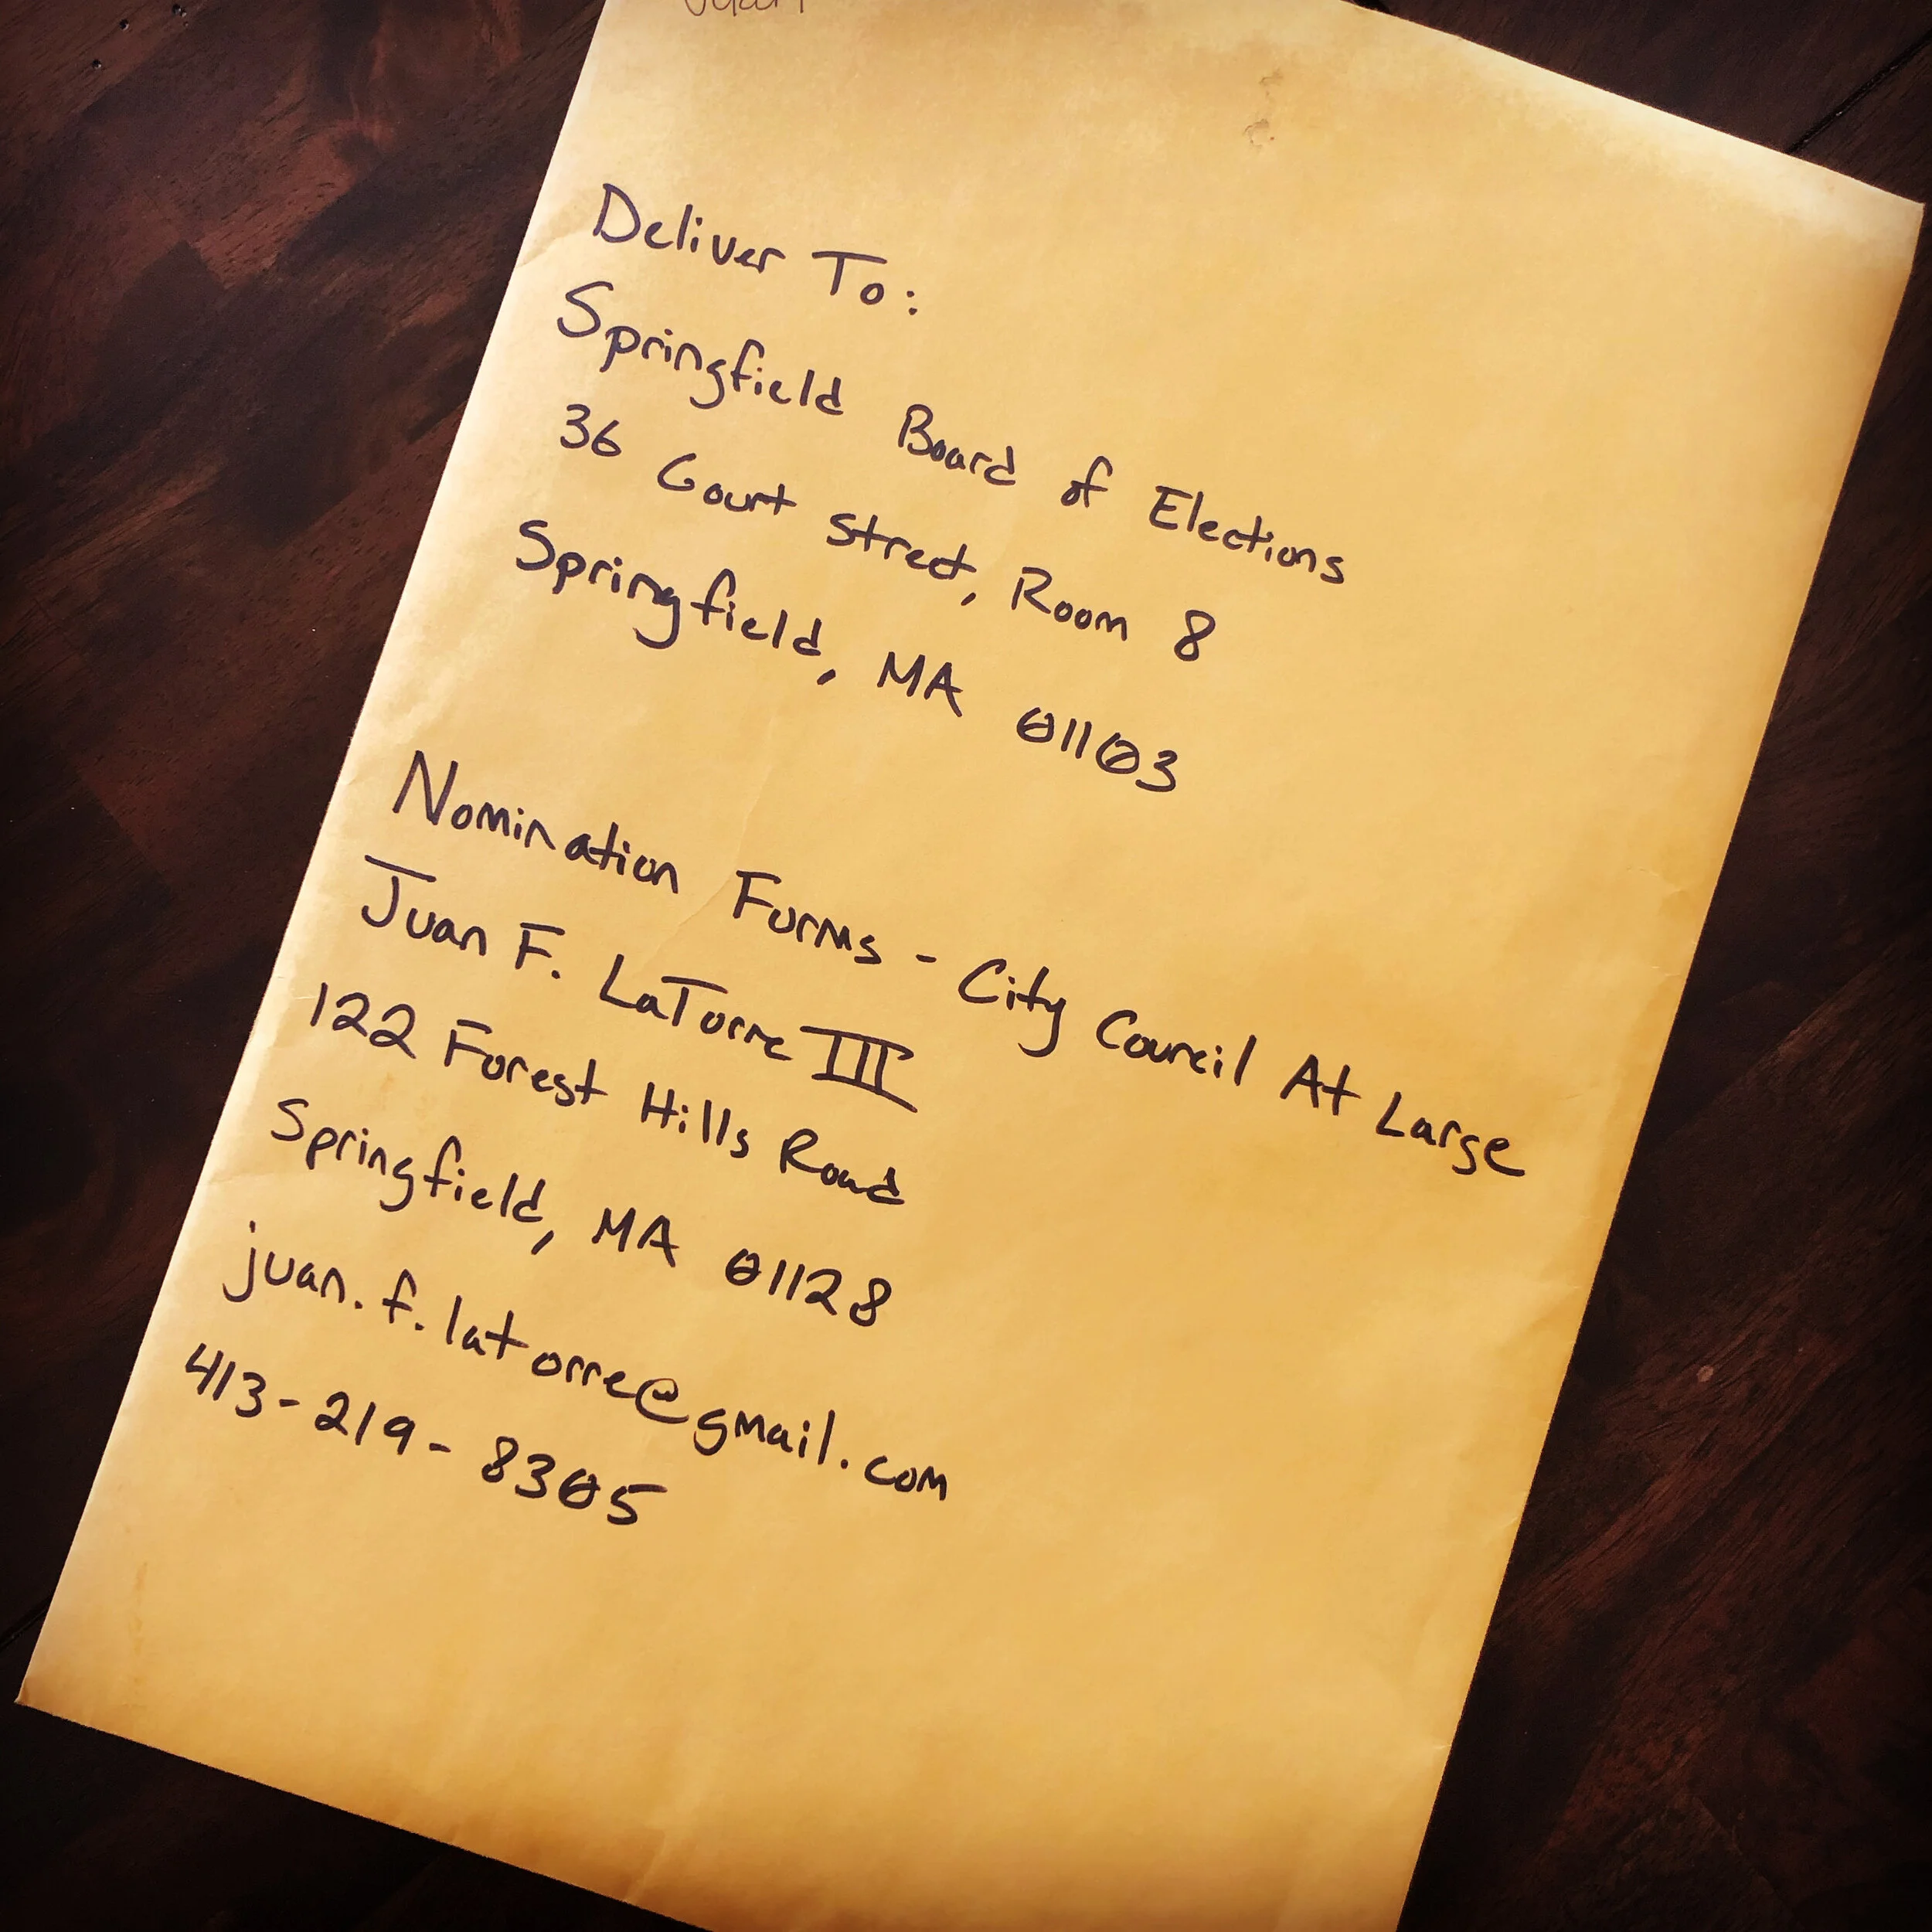 Juan
Deliver To:
Springfield Board of Elections
36 Court Street, Room 8
Springfield, MA 01103
Nomination Forms - City Council At Large
Juan F. LaTorre III
122 Forest Hills Road
Springfield, MA 01128
juan.f.latorre@gmail.com
413-219-8305